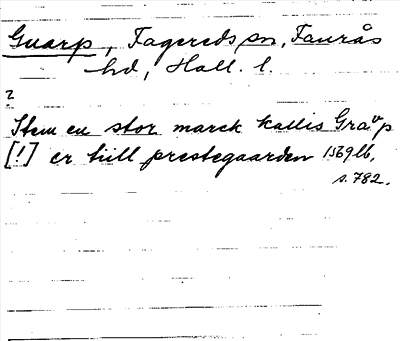 Guarp, Fagereds sn, Faurås
hd, Hall. l.
?
Item en stor marck kallis Graup
[!] er till prestegaarden 1569 lb.
s. 782.